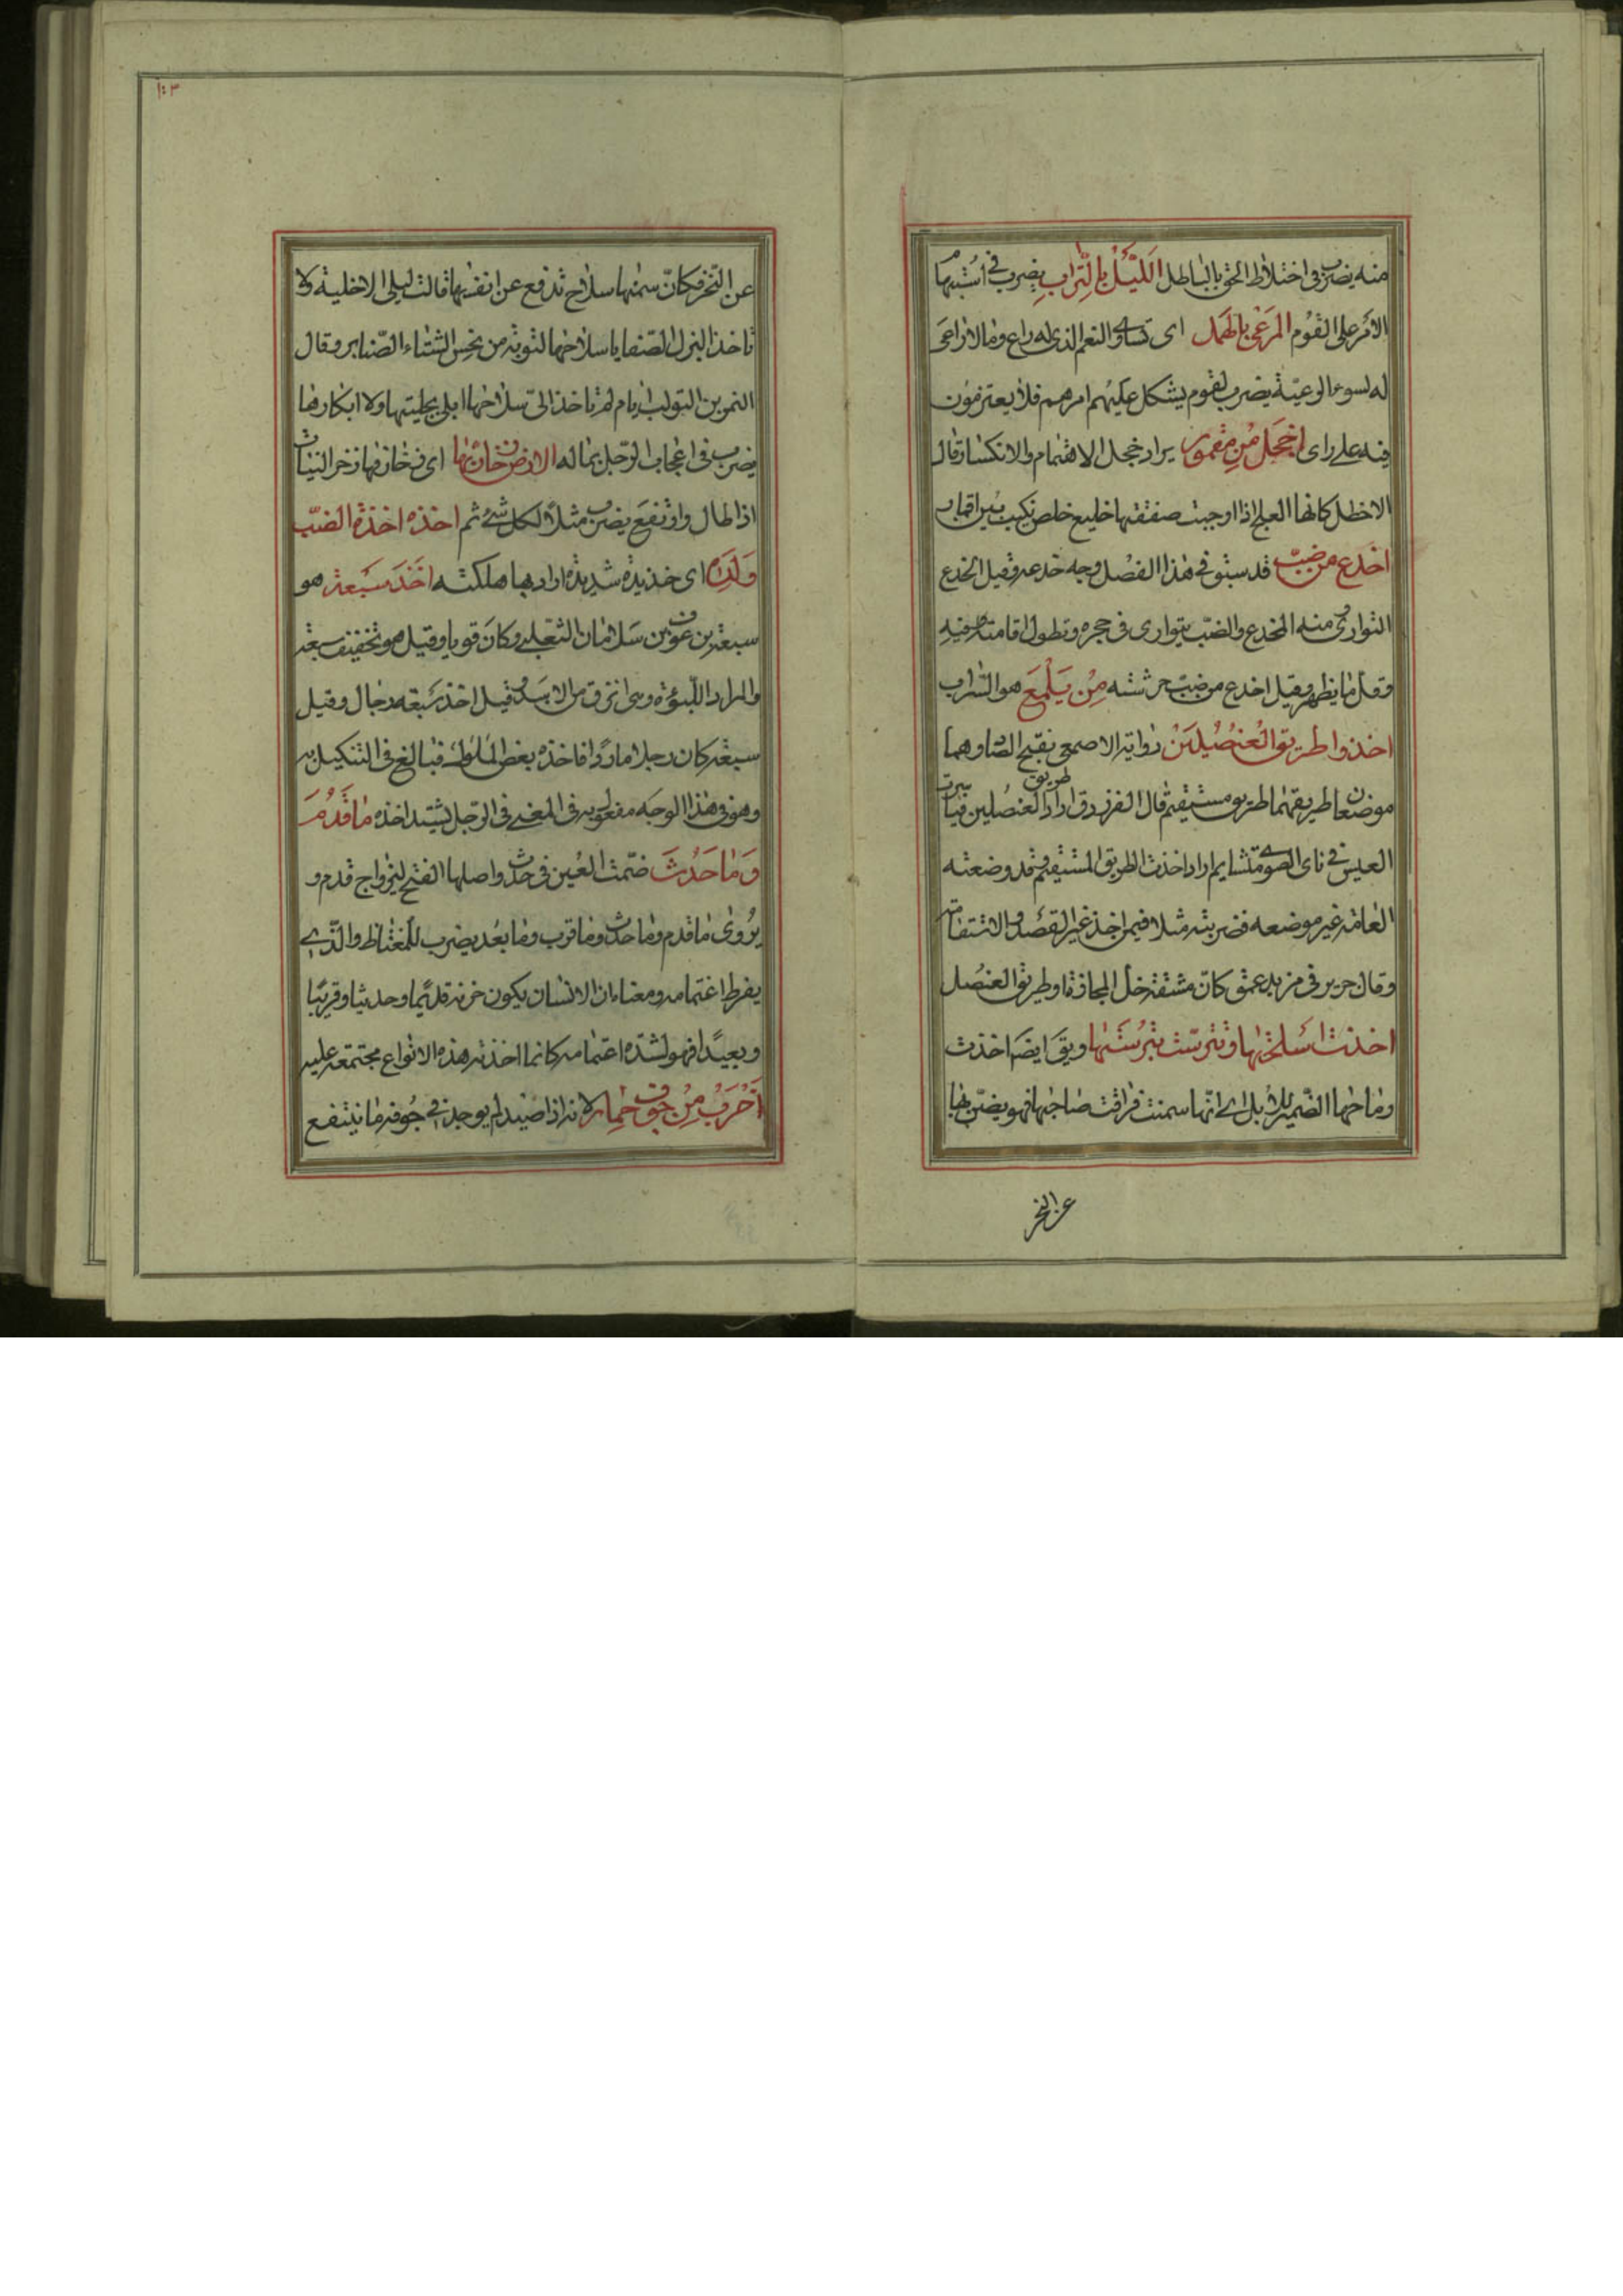 منه يضرب فى اختلاط الحق بالباطل الليل بالتراب يضرب فى استبهام
الامر على القوم المرعى بالهمل اى تساوى النعم الذى له راع وما لا راعى
له لسوء الرعية يضرب لقوم يشكل عليهم امرهم فلا يعتزمون
فيه على راى اخجل من مقمور يراد خجل الاهتمام والانكسار قال
الاخطل كانها العلج اذا اوجبت صفقتها خليع خلص نكيب بين اقمار
اخدع من ضب قد سبق فى هذا الفصل وجه خدعه وقيل الخدع
التوارى منه المخدع والضب يتوارى فى جحره وتطول اقامته فيه
وقل ما يظهر وقيل اخدع من ضب حرشته من يلمع هو السراب
اخذوا طريق العنصلين رواية الاصمعى بفتح الصاد وهما
موضعان طريقهما طريق مستقيم قال الفرزدق اراد طريق العنصلين فياسرت
العيس فى ناى الصوى متشايم اراد اخذت الطريق المستقيم قد وضعته
العامة غير موضعه فضربته مثلا فيمن اخذ غير القصد والاستقامة
وقال جرير فى مزبد عمق كان مشقته خل المجازة او طريق العنصل
اخذت اسلحتها وتترست بترستها ويق ايضا اخذت
رماحها الضمير للابل اى انها سمنت فراقت صاحبها فهو يضن بها
عن النحر
١٠٣
عن النحر فكان سمنها سلاح تدفع عن انفسها قالت ليلى الاخلية ولا
تاخذ البزل الصفايا سلاحها لتوبة من نحس الشتاء الصنابر وقال
النمر بن التولب ايام لم تاخذ الى سلاحها ابلى بجلتها ولا ابكارها
يضرب فى اعجاب الرجل بماله الارض خازنها اى زخارفها زخر النبات
اذا طال وارتفع يضرب مثلا لكل شئ تم اخذه اخذة الضب
ولده اى اخذ يده شديدة اراد بها هلكته اخذ سبعة هو
سبعة بن عوف بن سلامان الثعلبى وكان قويا وقيل هو تخفيف سبعة
والمراد اللبوءة وهى انزق من الاسد وقيل اخذ سبعة رجال وقيل
سبعة كان رجلا ماردا فاخذه بعض الملوك فبالغ فى التنكيل به
وهو فى هذا الوجه مفعول به فى المعنى فى الرجل يشتد اخذه ما قدم
وما حدث ضمت العين فى حدث واصلها الفتح ليزواج قدم و
يروى ما قدم وما حدث وما قرب وما بعد يضرب للمغتاظ والذى
يفرط اغتمامه ومعناه ان الانسان يكون حزنه قديما وحديثا وقريبا
وبعيدا فهو لشدة اغتمامه كانما اخذته هذه الانواع مجتمعة عليه
اخرب من جوف حمار لانه اذا صيد لم يوجد فى جوفه ما ينتفع